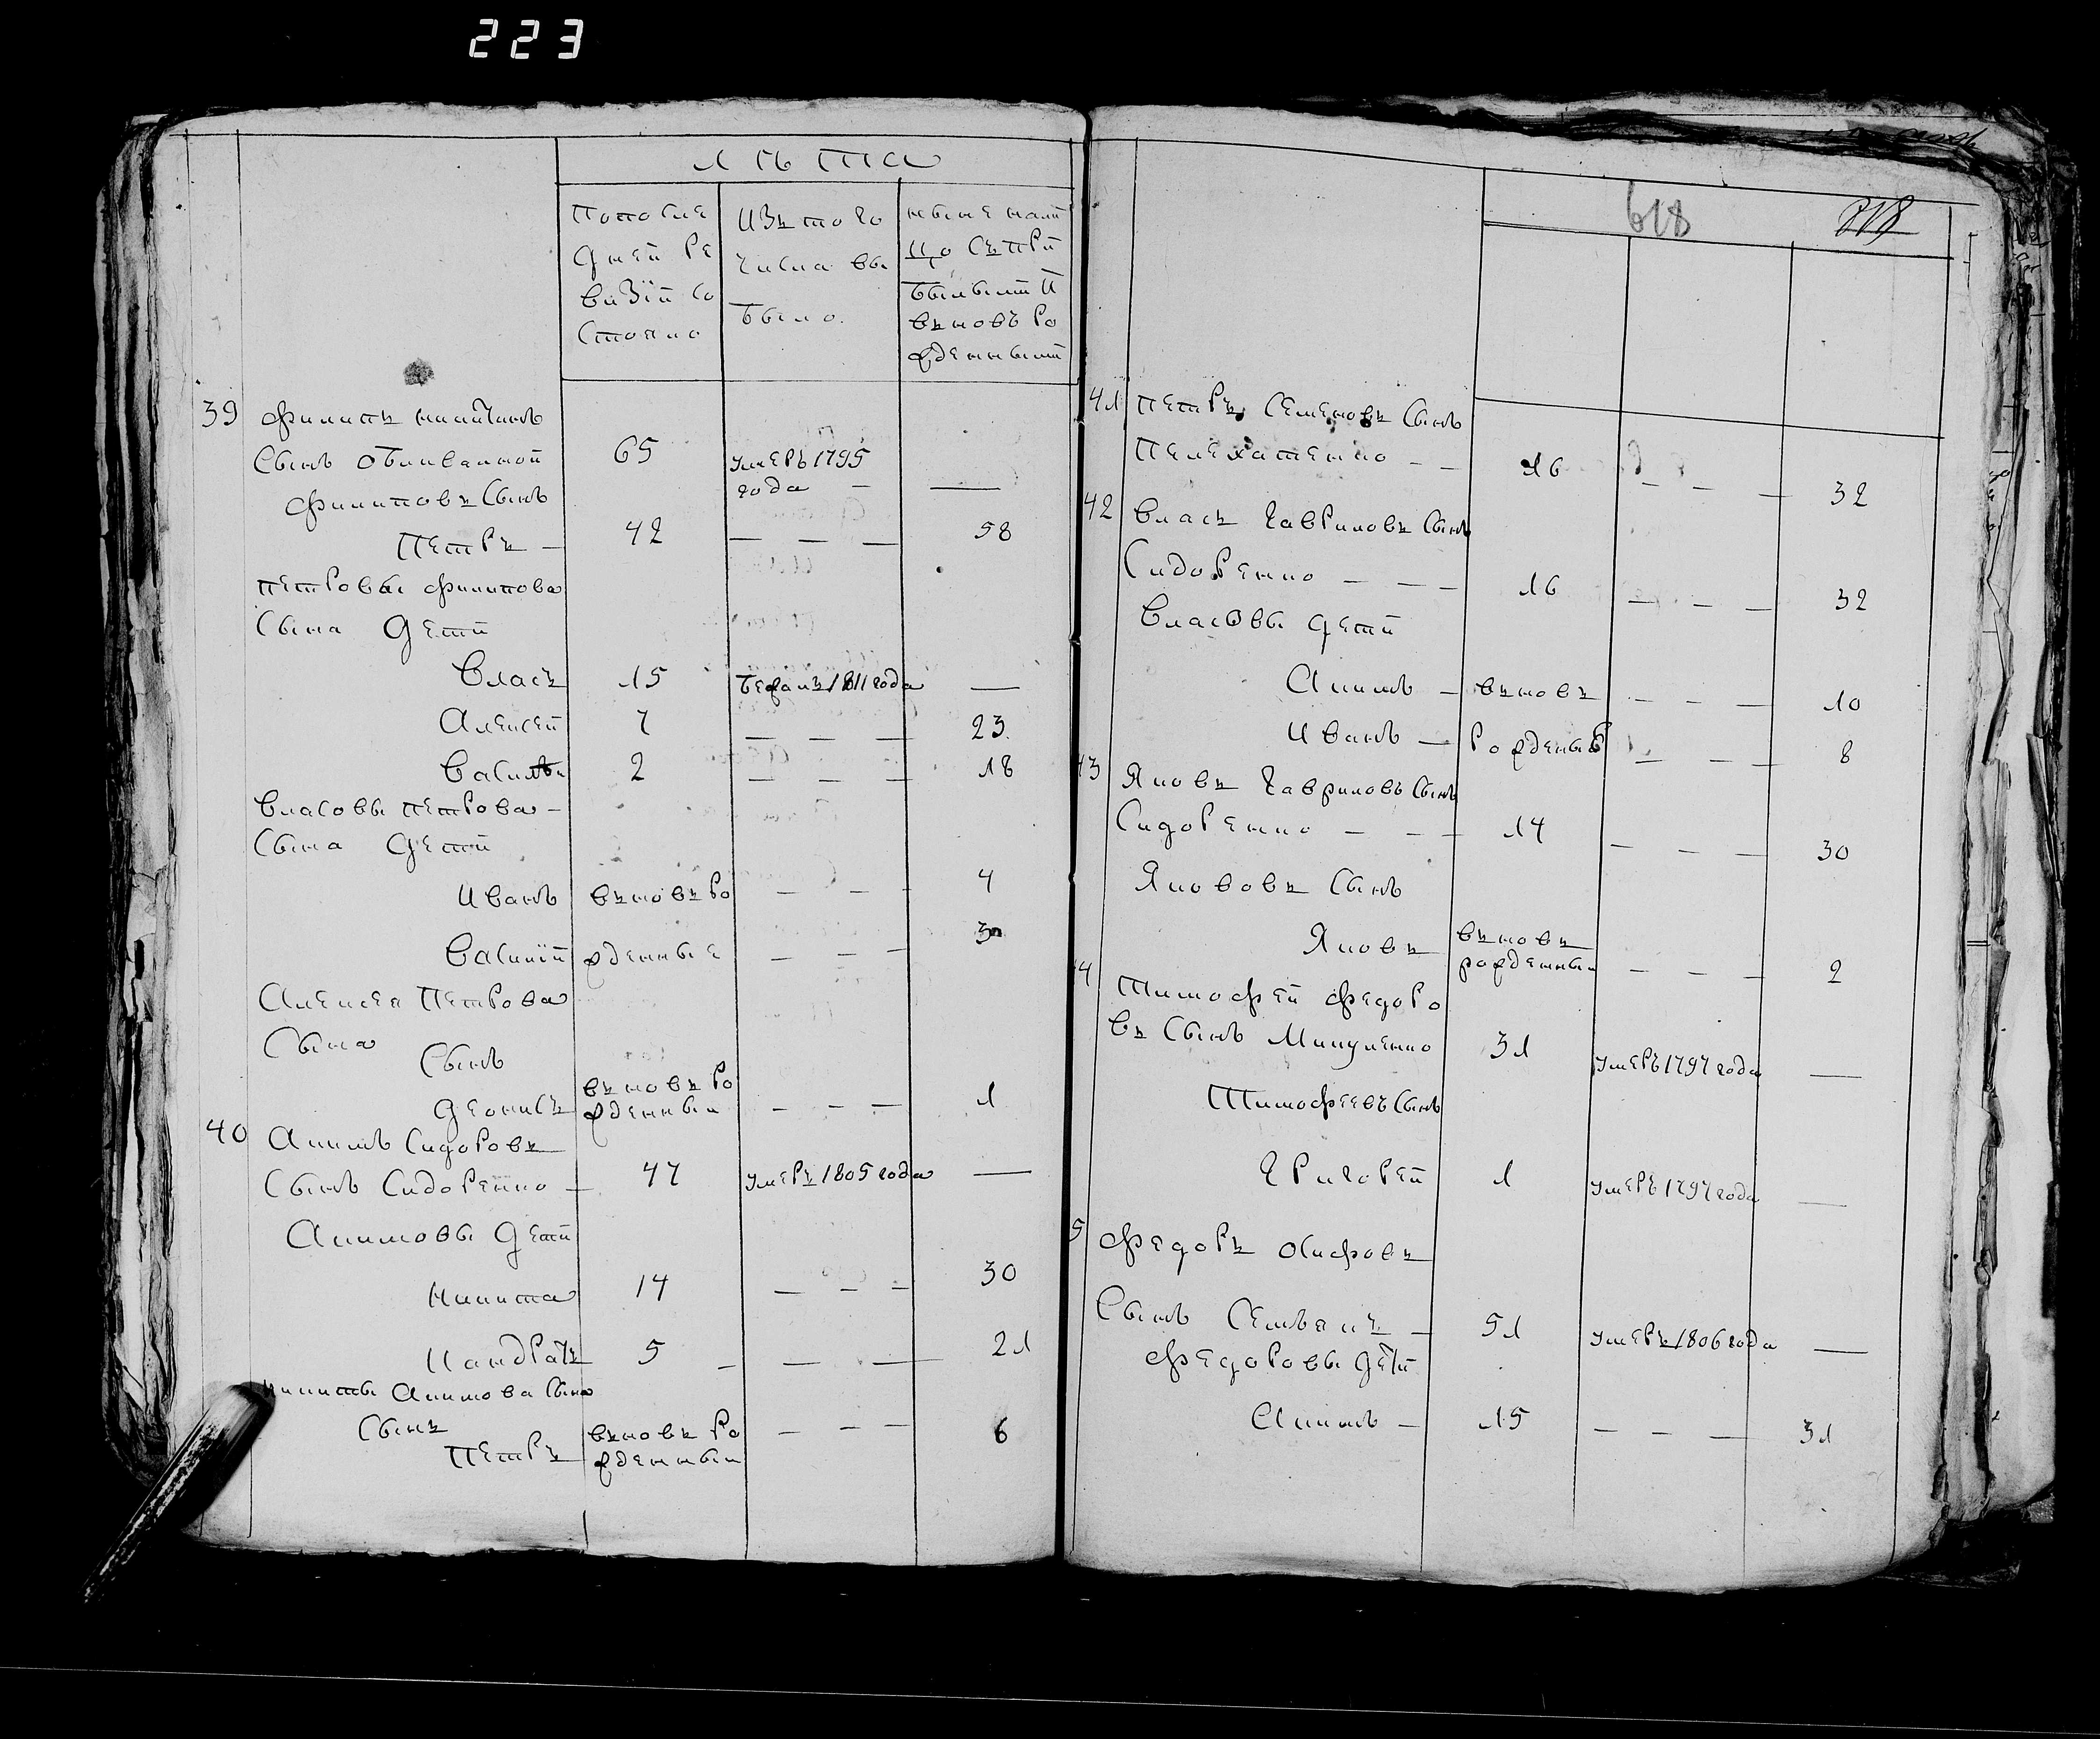 223
лѣта
попосле
дней ре
визіи со
стояло
изъ того
числа вы
было.
ныне нали
цо съ при
былыми и
вновъ ро
жденными
39 Филипъ никитинъ
сынъ обливаной 65 умеръ 1795
года —
Филиповъ сынъ
Петръ — 42 — — — 58
петровы филипова
сына дети
Власъ 15 бежалъ 1811 года —
Алексей 7 — — — 23.
Василъи 2 — — — 18
Власовы петрова —
сына дети
Иванъ въновъ ро — — — 4
Василій жденные — — — 3
Алексея Петрова
сына
сынъ
Денисъ въновъ ро
жденныи — — — 1
40 Акимъ Сидоровъ
сынъ Сидоренко — 47 умеръ 1805 года —
Акимовы дети
никита 14 — — — 30
Кандратъ 5 — — — 21
никиты Акимова сына
сынъ
петръ въновъ ро
жденныи — — — 6
618 218
41 петръ Семеновъ сынъ
Пелехатенко — — 16 — — — 32
42 Власъ Гавриловъ сынъ
Сидоренко — — — 16 — — — 32
Власовы дети
Акимъ — въновъ — — — 10
Иванъ — рожденыѣ — — — 8
43 Яковъ Гавриловъ сынъ
Сидоренко — — — 14 — — — 30
Якововъ сынъ
Яковъ въновъ
рожденныи — — — 2
4 Тимофей федоро
въ сынъ Микуленко 31 умеръ 1797 года —
Тимофеевъ сынъ
Григорей 1 умеръ 1797 года —
5 Федоръ Осифовъ
сынъ — 51 умеръ 1806 года —
федоровы дети
Акимъ — 15 — — — 31